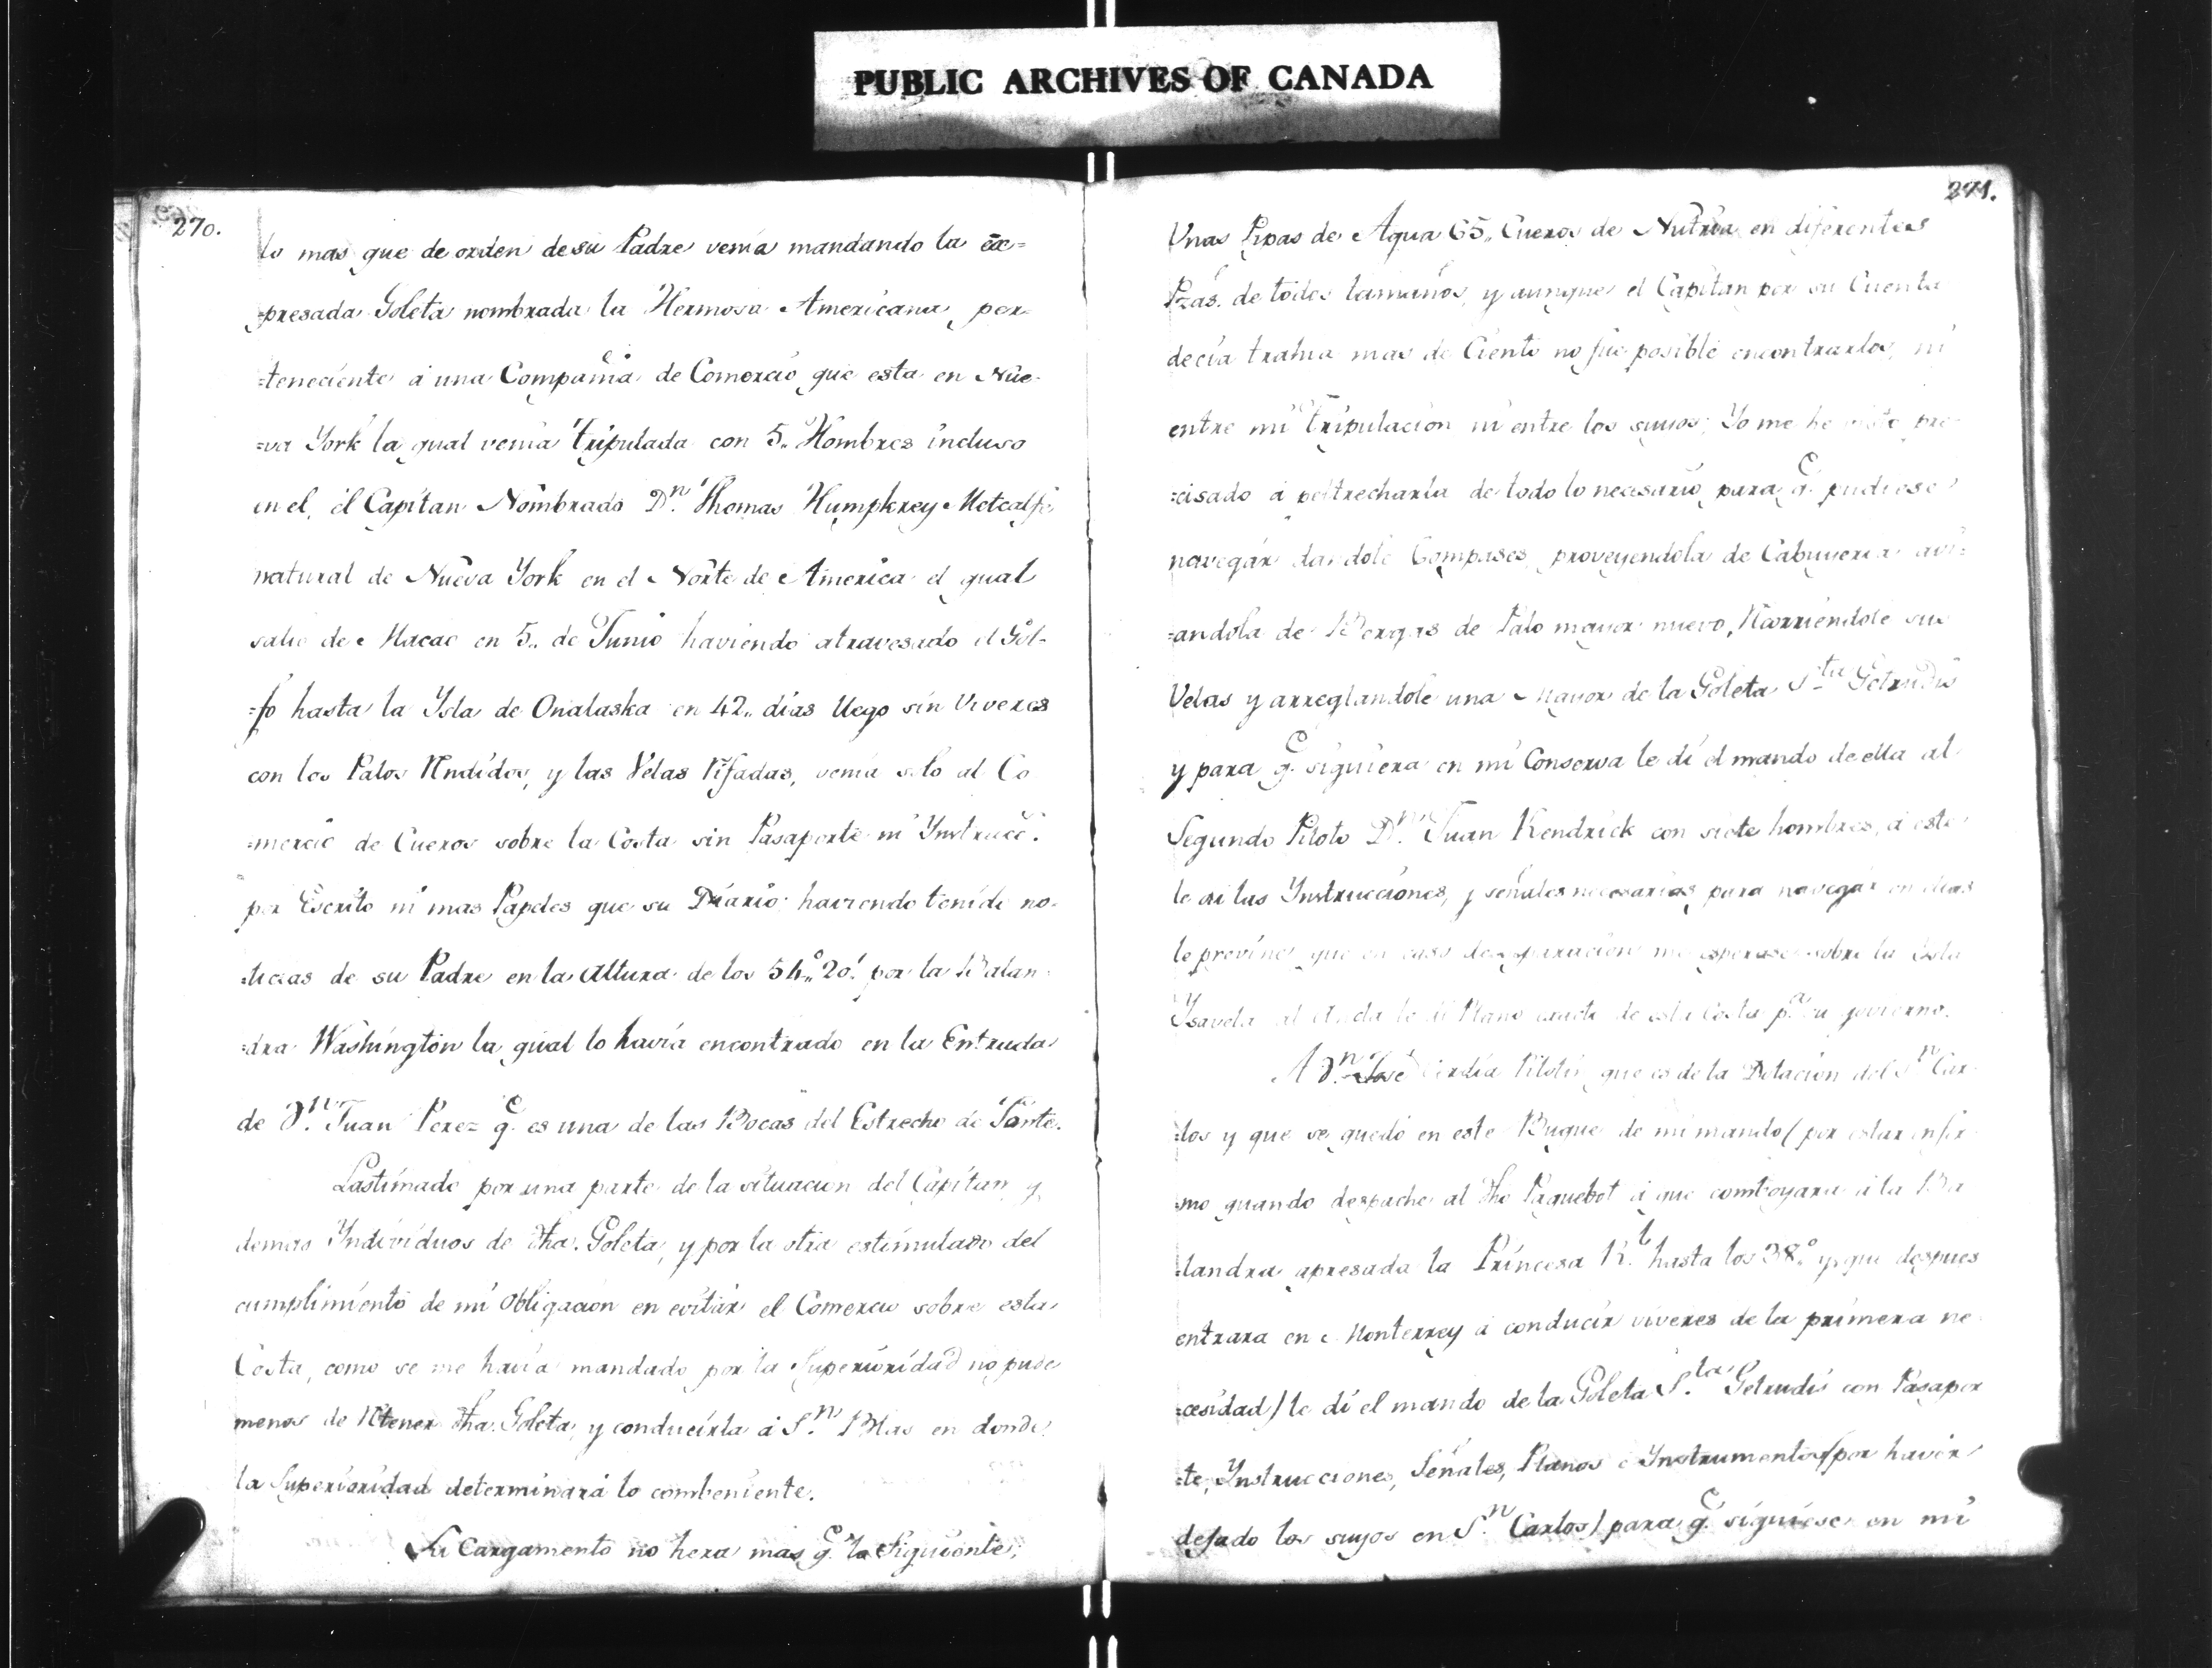 PUBLIC ARCHIVES OF CANADA
270.
lo mas que de orden de su Padre venia mandando la ex=
=presada Goleta nombrada la Hermosa Americana, per=
=teneciente á una Compañia de Comercio que esta en Nue-
=va York la qual venia tripulada con 5,, Hombres incluso
en el, el Capitan Nombrado Dn. Thomas Humphrey Metcalfe
natural de Nueva York en el Norte de America el qual
salio de Macao en 5,, de Junio haviendo atravesado el Gol-
=fo hasta la Ysla de Onalaska en 42,, dias llego sin Viveres
con los Palos Rendidos, y las Velas Rifadas, venia solo al Co
=mercio de Cueros sobre la Costa sin Pasaporte ni Ynstrucc.
por Escrito ni mas Papeles que su Diario: haviendo tenido no-
=ticias de su Padre en la Altura de los 54,,° 20! por la Balan=
=dra Washington la qual lo havia encontrado en la Entrada
de Dn. Juan Perez q.e es una de las Bocas del Estrecho de Fonte.
Lastimado por una parte de la situacion del Capitan y
demas Yndividuos de dha. Goleta, y por la otra estimulado del
cumplimiento de mi obligacion en evitar el Comercio sobre esta
Costa, como se me havia mandado por la Superioridad no pude
menos de Retener dha. Goleta, y conducirla á Sn. Blas en donde
la Superioridad determinará lo combeniente.
Su Cargamento no hera mas q.e la Siguiente;
271.
Unas Pipas de Agua 65,, Cueros de Nutria en diferentes
Pzas. de todos tamaños, y aunque el Capitan por su Cuenta
decia trahia mas de Ciento no fue posible encontrarlos, ni
entre mi Tripulacion ni entre los suyos; Yo me he visto pre-
=cisado á peltrecharla de todo lo necesario, para q.e pudiese
navegar dandole Compases, proveyendola de Cabuyeria avi=
=andola de Bergas de Palo mayor nuevo, Recorriendole sus
Velas y arreglandole una Mayor de la Goleta Sta. Getrudis
y para q.e siguiera en mi Conserva le di el mando de ella al
Segundo Piloto Dn. Juan Kendrick con siete hombres, á este
le di las Ynstrucciones, y señales necesarias, para navegar en ellas
le previne que en caso de separacion me esperase sobre la Ysla
Ysavela al Ancla le di Plano exacto de esta Costa p.a su govierno.
A Dn. José Verdia Piloto que es de la Dotacion del Sn. Car
=los y que se quedó en este Buque de mi mando (por estar enfer
=mo quando despaché al dho Paquebot á que comboyara á la Ba
=landra apresada la Princesa Rl. hasta los 38,,° y que despues
entrara en Monterrey á conducir viveres de la primera ne
=cesidad) le di el mando de la Goleta Sta. Getrudis con Pasapor
=te, Ynstrucciones, Señales, Planos é Ynstrumentos (por haver
dejado los suyos en Sn. Carlos) para q.e siguiese en mi